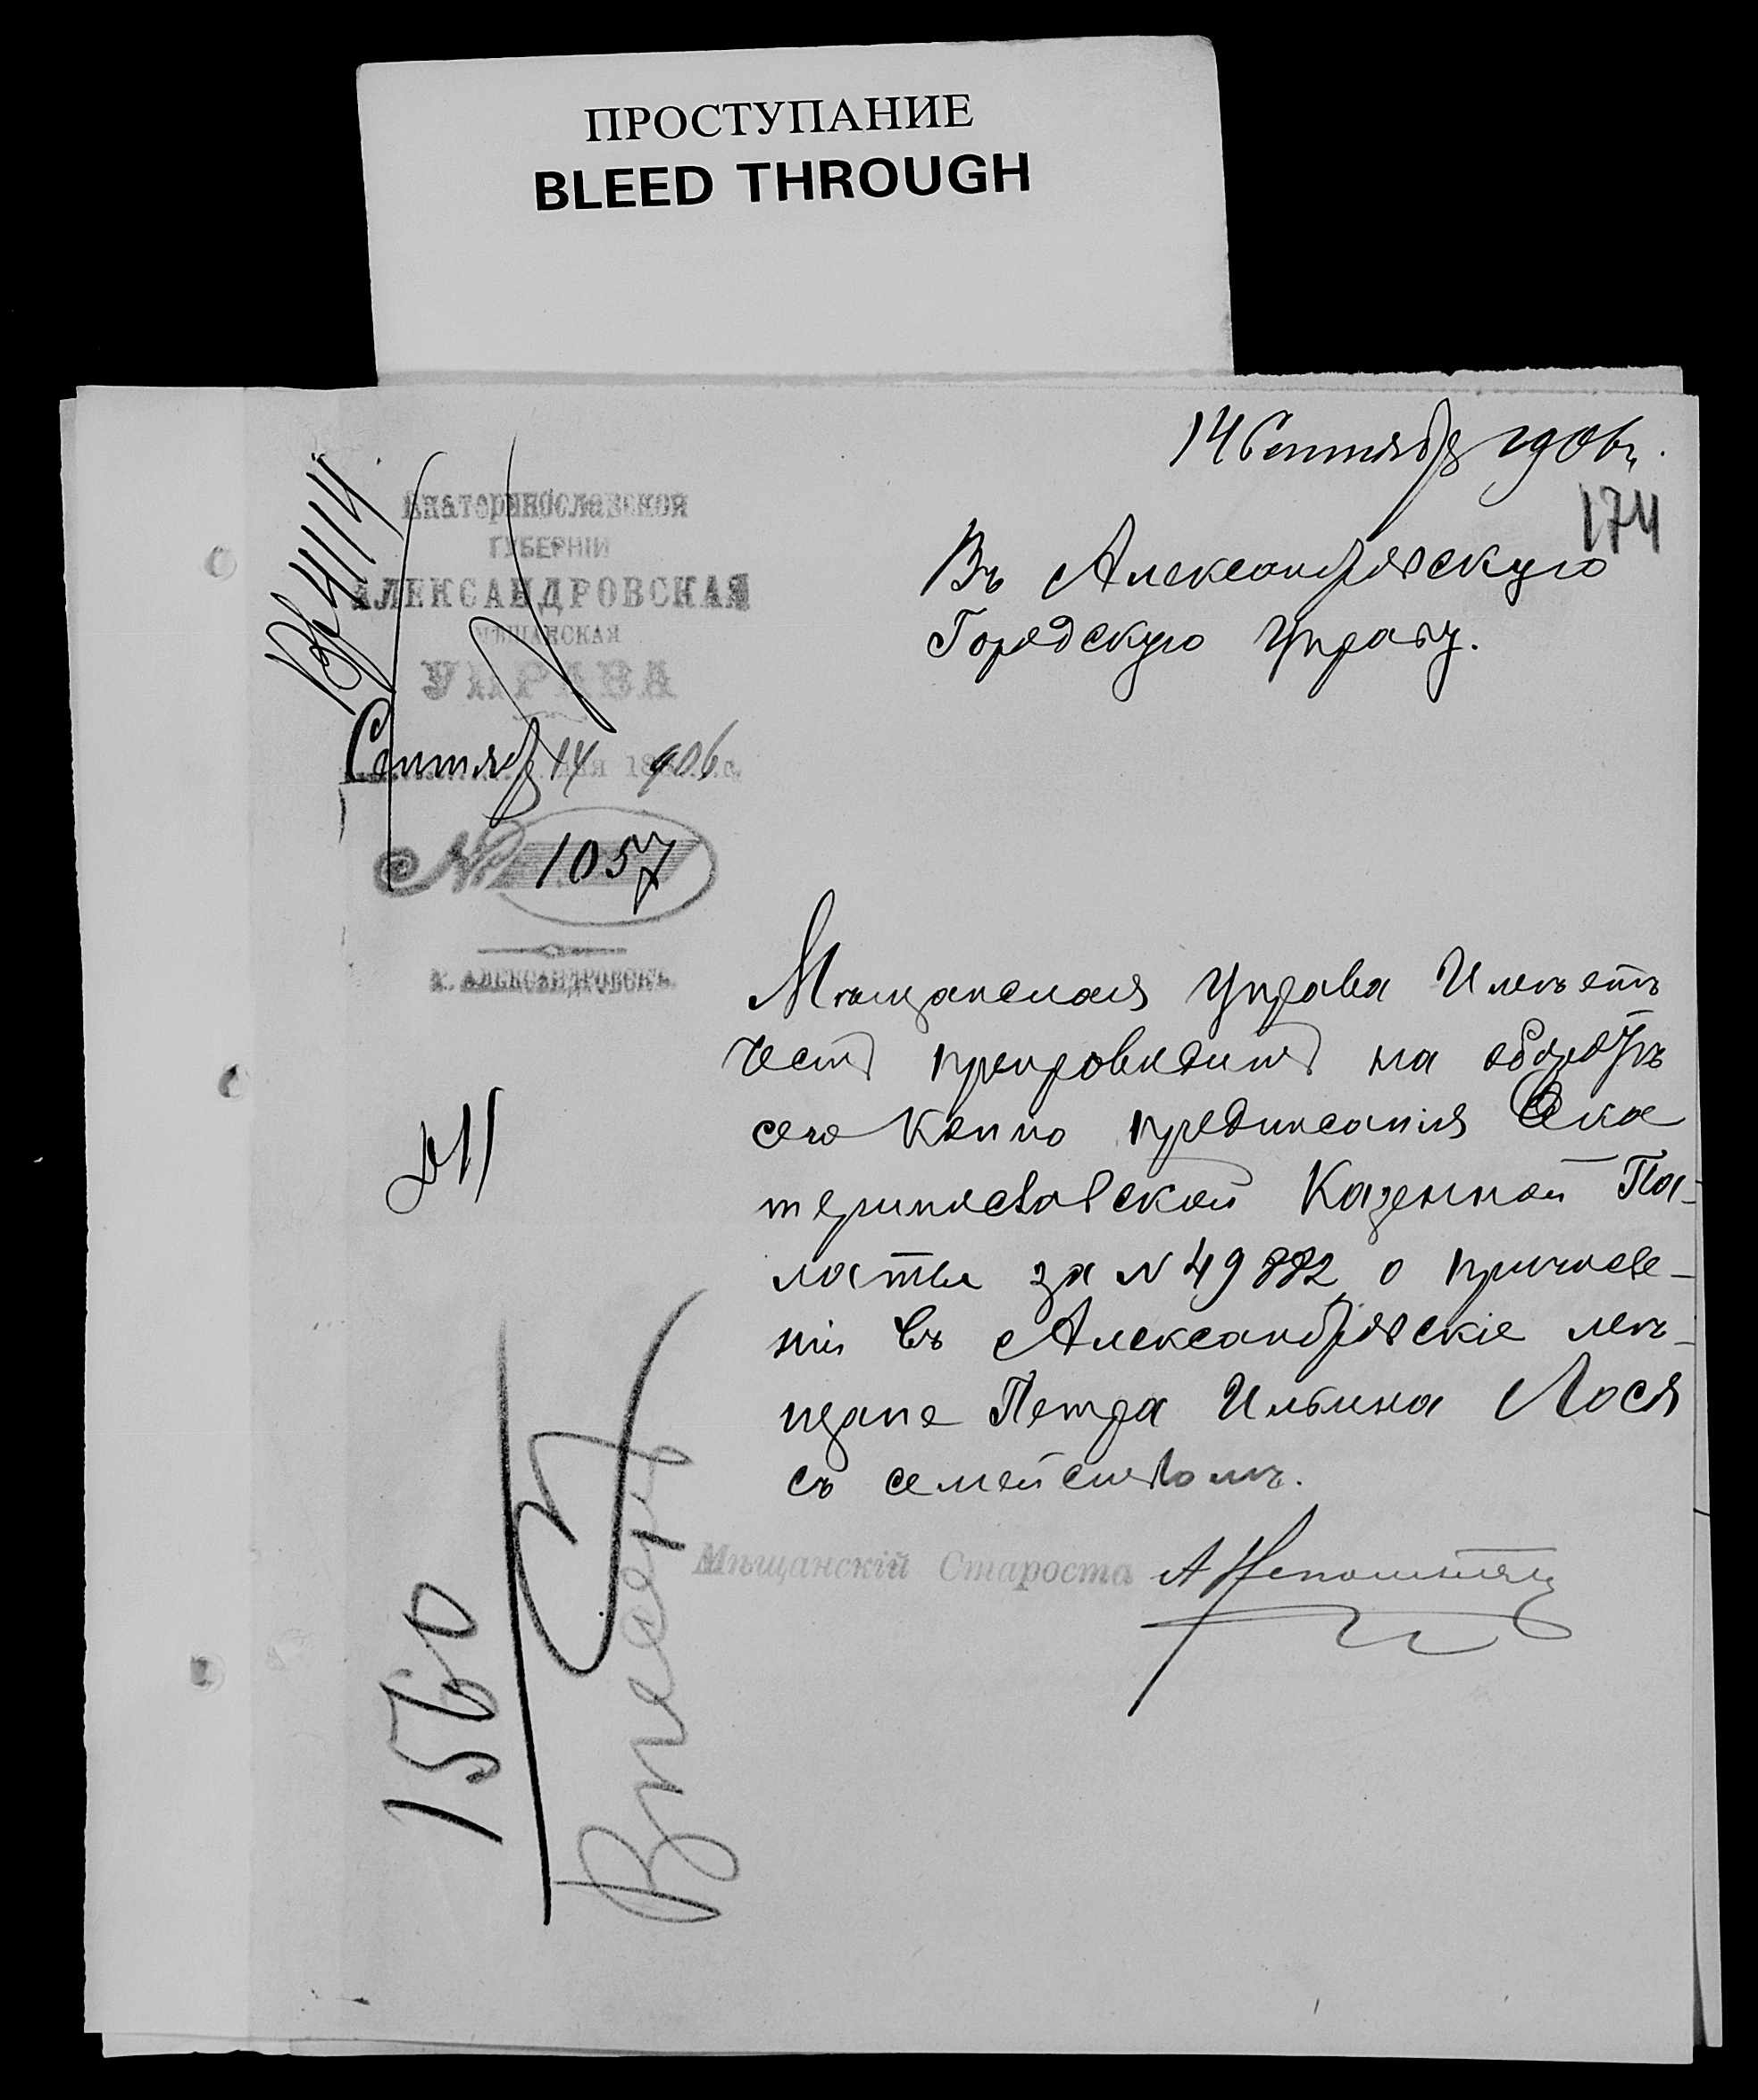 ПРОСТУПАНИЕ
BLEED THROUGH
14 Сентября 1906 г.
174
Екатеринославской
ГУБЕРНІИ
АЛЕКСАНДРОВСКАЯ
МѢЩАНСКАЯ
УПРАВА
Сентября 14 дня 1906 г.
№ 1057
г. АЛЕКСАНДРОВСКЪ.
Въ Александровскую
Городскую Управу.
Мѣщанская Управа Имѣетъ
честь препроводить на оборотѣ
сего копію предписанія Ека
теринославской Казенной Па-
латы за № 49882 о причисле-
ніи въ Александровскіе мѣ-
щане Петра Ильина Лося
съ семействомъ.
Мѣщанскій Староста
1560